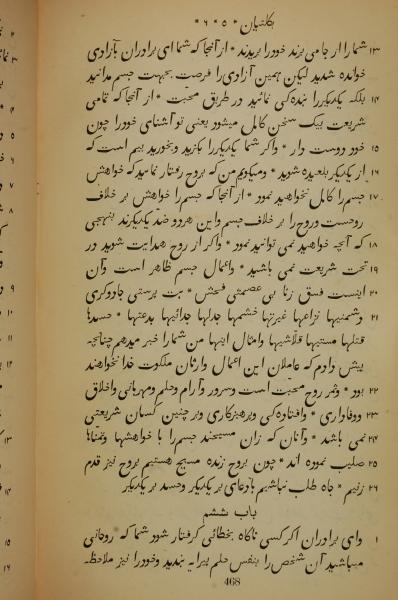 بگلتیان * ۵ * ۶ *
۱۳ شمارا از جا می برند خودرا بریدند * از آنجا که شما ای برادران بآزادی
خوانده شدید لیکن همین آزادی را فرصت بجهت جسم مدانید
۱۴ بلکه یکدیگر را بنده کی نمائید در طریق محبّت * از آنجا که تمامی
شریعت بیک سخن کامل میشود یعنی تو آشنای خودرا چون
۱۵ خود دوست دار * واگر شما یکدیگررا بگزید وبخورید بیم است که
۱۶ از یکدیگر بلعیده شوید * ومیگویم من که بروح رفتار نمایید که خواهش
۱۷ جسم را کامل نخواهید نمود * از آنجا که جسم را خواهش بر خلاف
روحست وروح را بر خلاف جسم واین هردو ضدّ یکدیگرند بنهجی
۱۸ که آنچه خواهید نمی توانید نمود * واگر از روح هدایت شوید در
۱۹ تحت شریعت نمی باشید * واعمال جسم ظاهر است وآن
۲۰ اینست فسق زنا بی عصمتی فحش * بت پرستی جادوگری
۲۱ دشمنیها نزاعها غیرتها خشمها جدلها جدائیها بدعتها * حسدها
قتلها مستیها قلاّشیها وامثال اینها من شمارا خبر میدهم چنانچه
پیش دادم که عاملان این اعمال وارثان ملکوت خدا نخواهند
۲۲ بود * وثمر روح محبّت است وسرور وآرام وحلم ومهربانی واخلاق
۲۳ ووفاداری * وافتاده کی وپرهیزکاری وبر چنین کسان شریعتی
۲۴ نمی باشد * وآنان که زان مسیحند جسم را با خواهشها وتمنّاها
۲۵ صلیب نموده اند * چون بروح زنده مسیح هستیم بروح نیز قدم
۲۶ زنیم * جاه طلب نباشیم بادعای بر یکدیگر وحسد بر یکدیگر
باب ششم
۱ وای برادران اگر کسی ناگاه بخطائی گرفتار شود شما که روحانی
میباشید آن شخص را بنفس حلم پیرایه بندید وخودرا نیز ملاحظه
468